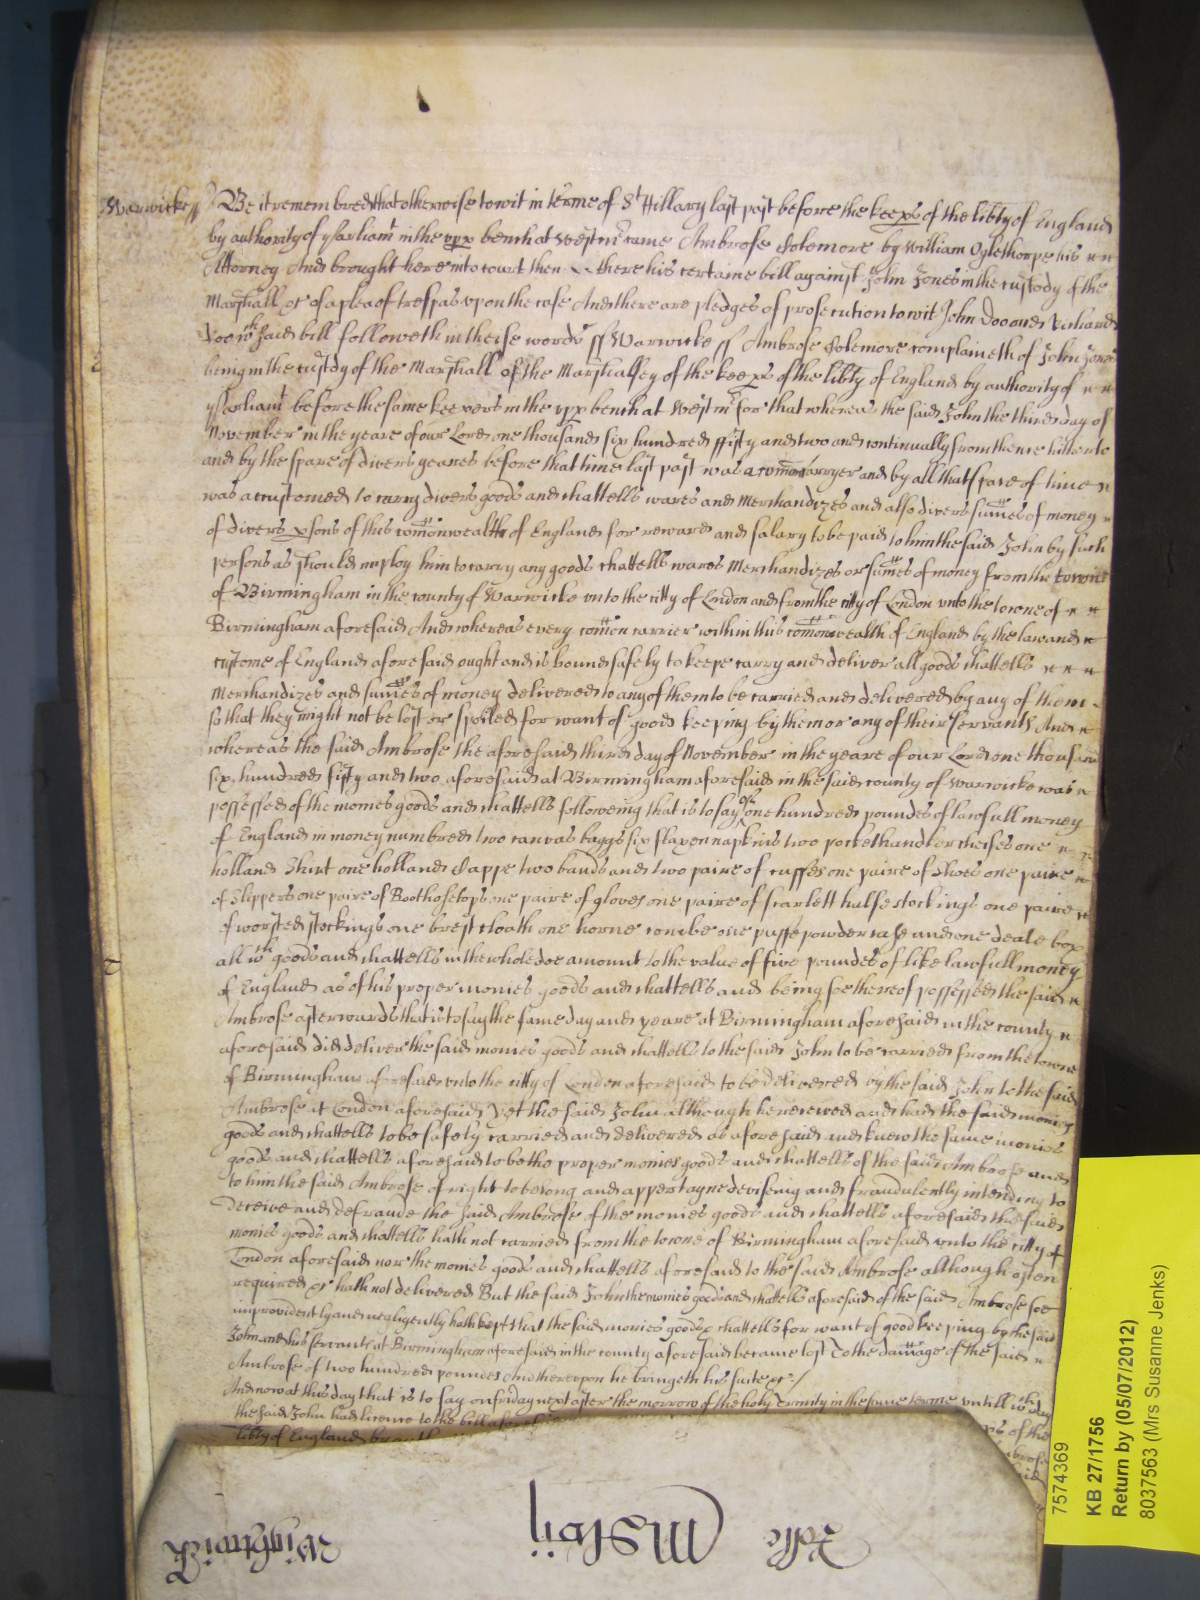 Warwicke ss Be it remembred that otherwise to wit in terme of St Hillary last past before the keeps of the libty of England
by authority of parliamt in the upp bench at Westmr came Ambrose Holemore by William Oglethorpe his
Attorney And brought here into court then there his certaine bill against John Jones in the custody of the
Marshall &c of a plea of trespas upon the case And there are pledges of prosecution to wit John Doo and Richard
Roo wch said bill followeth in theise words ss Warwicke ss Ambrose Holemore complaineth of John Jones
being in the custdy of the Marshall of the Marshalsey of the keeps of the libty of England by authority of
parliamt before the same keepers in the upp bench at Westmr for that whereas the said John the third day of
November in the yeare of our Lord one thousand six hundred fifty and two and continually from thence hitherto
and by the space of divers yeares before that time last past was a comon carryer and by all that space of time
was accustomed to carry divers goods and chattells wares and Merchandizes and also divers sumes of money
of divers psons of this comonwealth of England for reward and salary to be paid to him the said John by such
persons as should imploy him to carry any goods chattells wares Merchandizes or sumes of money from the towne
of Birmingham in the county of Warwicke unto the citty of London and from the citty of London unto the towne of
Birmingham aforesaid And whereas every comon carrier within this comonwealth of England by the law and
custome of England aforesaid ought and is bound safely to keepe carry and deliver all goods chattells
Merchandizes and sumes of money delivered to any of them to be carried and delivered by any of them
so that they might not be lost or spoiled for want of good keeping by them or any of their servants And
whereas the said Ambrose the aforesaid third day of November in the yeare of our Lord one thousand
six hundred fifty and two aforesaid at Birmingham aforesaid in the said county of Warwicke was
possessed of the monies goods and chattells following that is to say of one hundred poundes of lawfull money
of England in money numbred two canvas baggs six flaxen napkins two pockethandkercheifes one
holland Shirt one holland Cappe two bands and two paire of cuffes one paire of Shoes one paire
of Slippers one paire of Boothosetops one paire of gloves one paire of scarlett halfe stockings one paire
of worsted stockings one brest cloath one horne combe one puffe powder case and one deale box
all wch goods and chattells in the whole doe amount to the value of five poundes of like lawfull money
of England as of his proper monies goods and chattells and being soe thereof possessed the said
Ambrose afterwards that is to say the same day and yeare at Birmingham aforesaid in the county
aforesaid did deliver the said monies goods and chattells to the said John to be carried from the towne
of Birmingham aforesaid unto the citty of London aforesaid to be delivered by the said John to the said
Ambrose at London aforesaid Yet the said John although he received and had the said monies
goods and chattells to be safely carried and delivered as aforesaid and knew the same monies
goods and chattells aforesaid to be the proper monies goods and chattells of the said Ambrose and
to him the said Ambrose of right to belong and appertayne devising and fraudulently intending to
deceive and defraude the said Ambrose of the monies goods and chattells aforesaid the said
monies goods and chattells hath not carried from the towne of Birmingham aforesaid unto the citty of
London aforesaid nor the monies goods and chattells aforesaid to the said Ambrose although often
required &c hath not delivered But the said John the monies goods and chattells aforesaid of the said Ambrose soe
improvidently and negligently hath kept that the said monies goods & chattells for want of good keeping by the said
John and his servants at Birmingham aforesaid in the county aforesaid became lost To the damage of the said
Ambrose of two hundred poundes And thereupon he bringeth his suite &c
And now at this day that is to say on friday next after the morrow of the holy Trinity in the same terme untill wch day
the said John had licence to the bill aforesaid
libty of England by
Wightwick
Rolle
7574369
KB 27/1756
Return by (05/07/2012)
8037563 (Mrs Susanne Jenks)